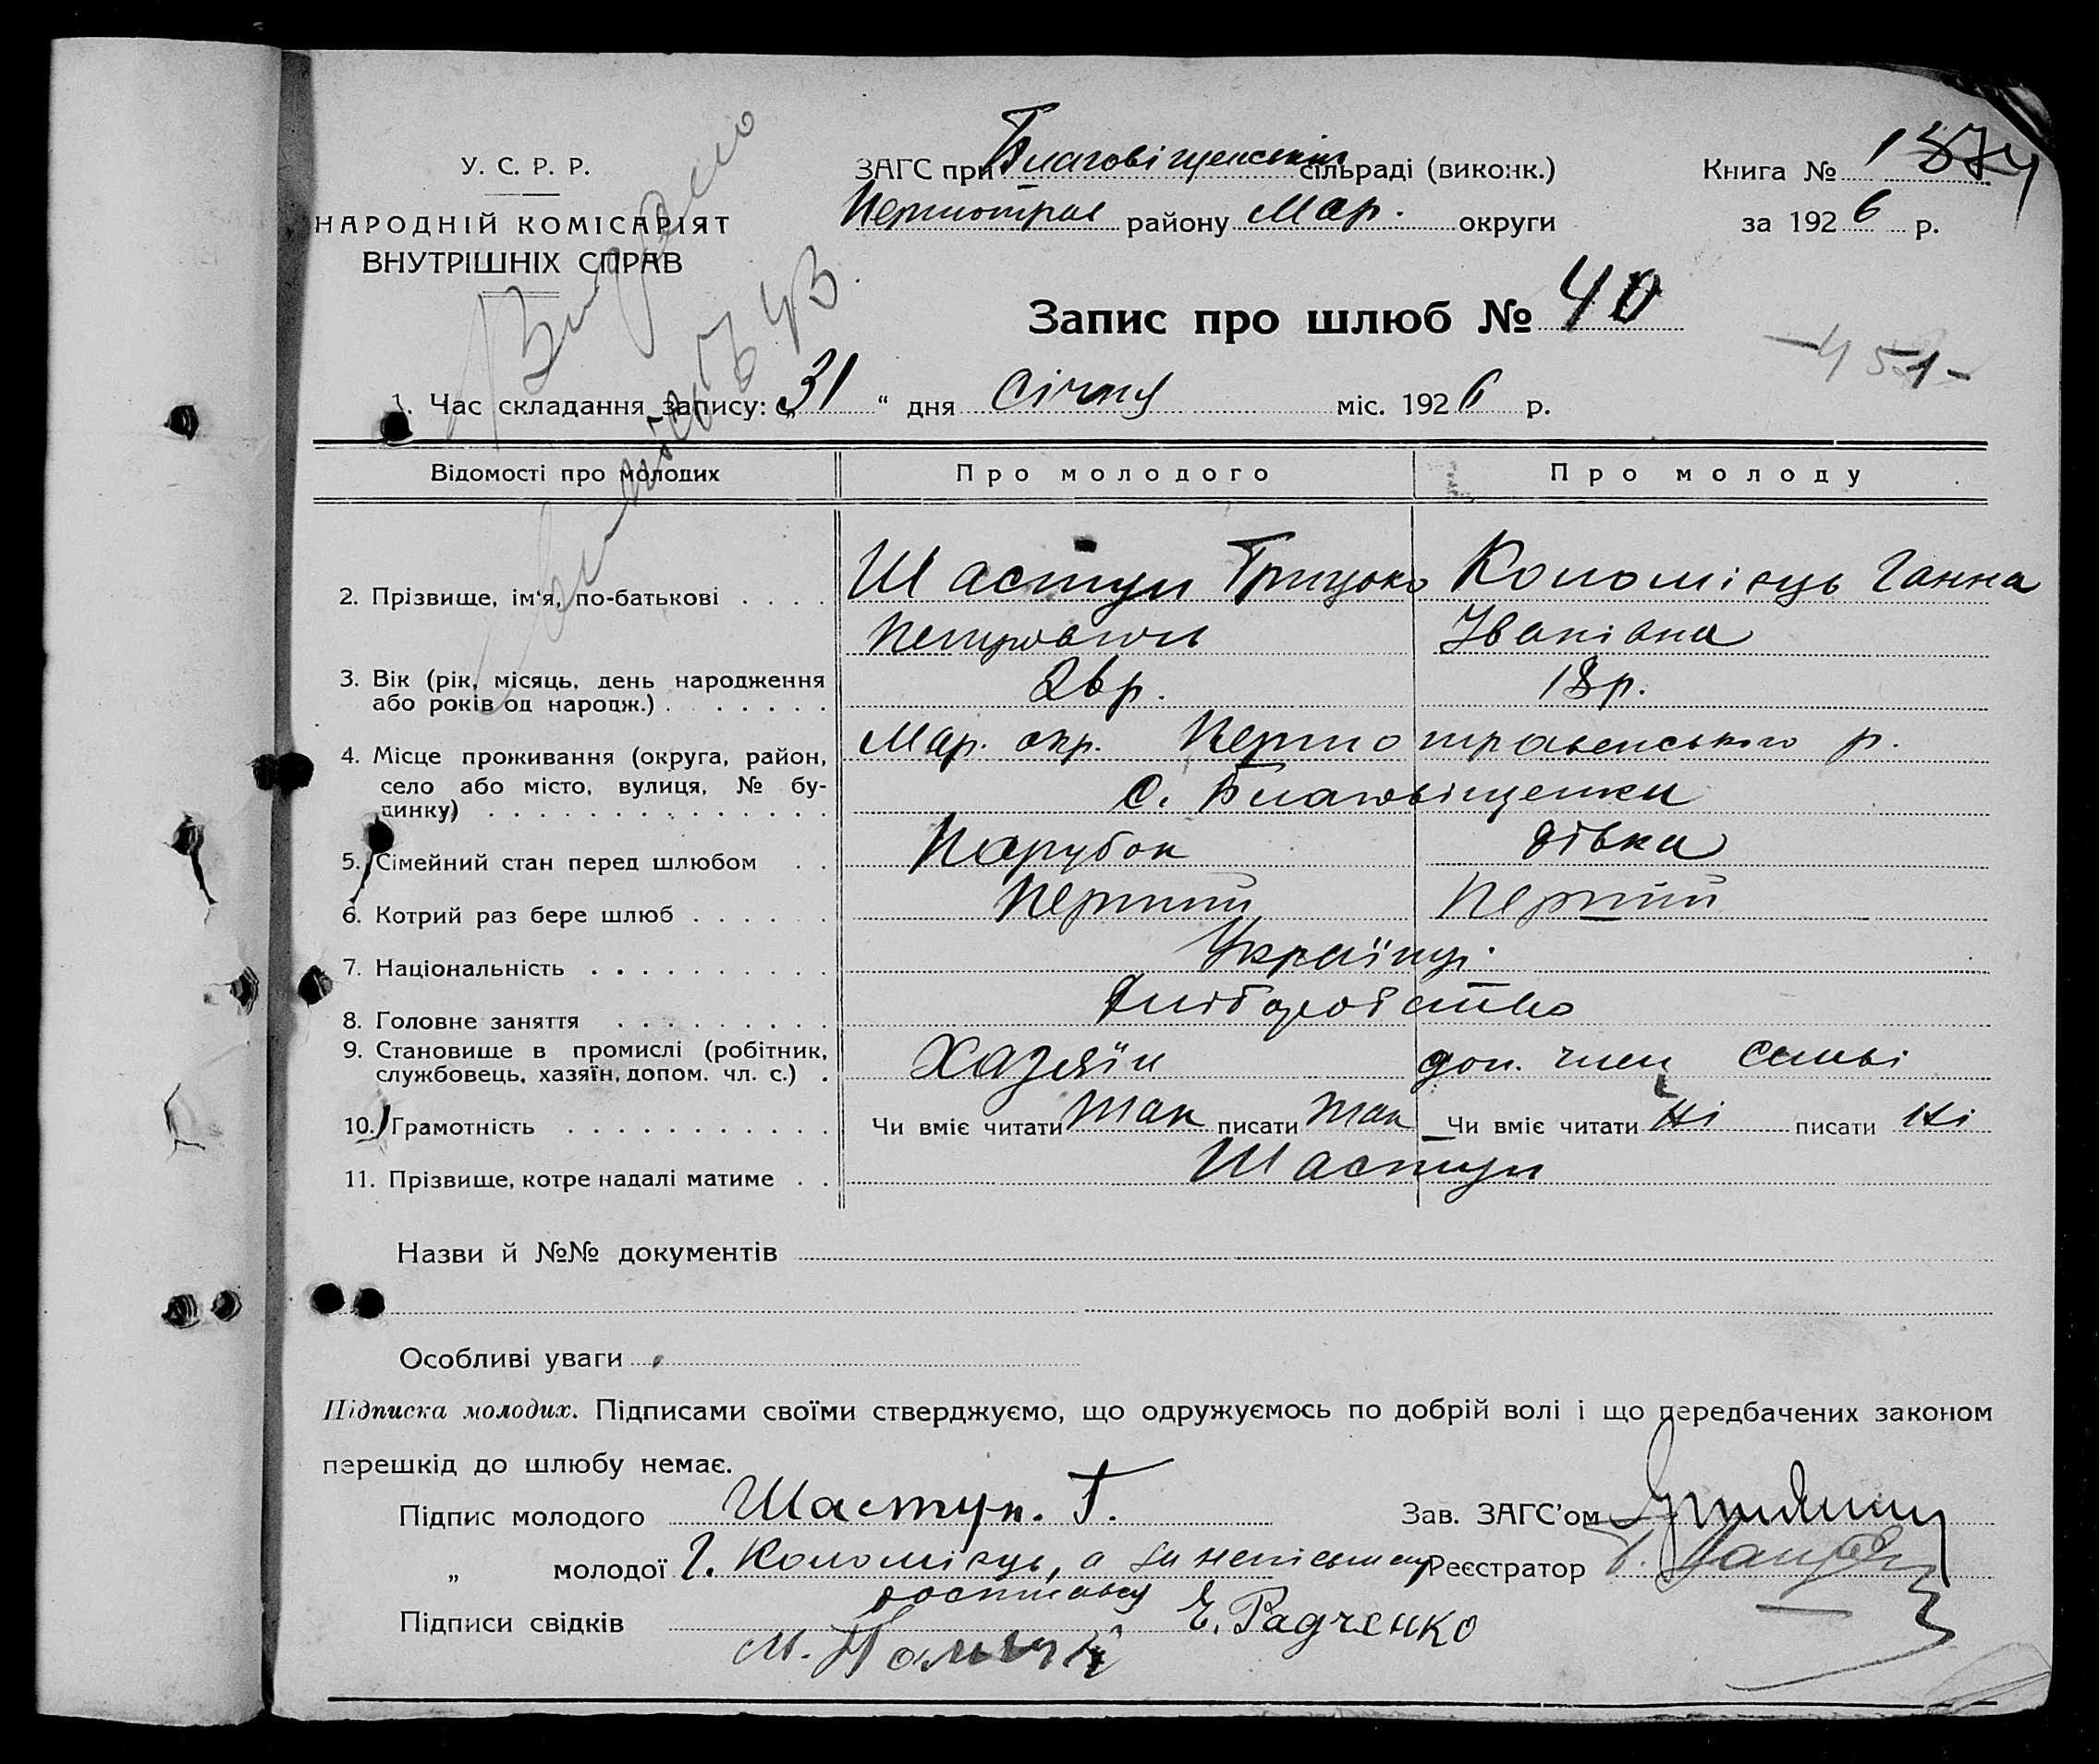 У. С. Р. Р.
НАРОДНІЙ КОМІСАРІЯТ
ВНУТРІШНІХ СПРАВ
ЗАГС при Благовіщенській сільраді (виконк.)
Першотрав району Мар. округи
Книга № 1
за 1926 р.
Видано
Запис про шлюб № 40
-451-
1. Час складання запису: „31“ дня Січня міс. 1926 р.
Відомості про молодих Про молодого Про молоду
2. Прізвище, ім'я, по-батькові . . . . Шастун Грицько Коломієць Ганна
Петрович Іванівна
3. Вік (рік, місяць, день народження 26р. 18р.
або років од народж.) . . . . . .
4. Місце проживання (округа, район, Мар. окр. Першотравенського р.
село або місто, вулиця, № бу- с. Благовіщенки
динку) . . . . . . . . . . . . . .
5. Сімейний стан перед шлюбом . . Парубок дівка
6. Котрий раз бере шлюб . . . . . Перший Перший
7. Національність . . . . . . . . . . Українці
8. Головне заняття . . . . . . . . . Хліборобство
9. Становище в промислі (робітник, Хазяїн доп. член семьі
службовець, хазяїн, допом. чл. с.) .
10. Грамотність . . . . . . . . . . . Чи вміє читати так писати так Чи вміє читати Ні писати Ні
11. Прізвище, котре надалі матиме . . Шастун
Назви й №№ документів
Особливі уваги
Підписка молодих. Підписами своїми стверджуємо, що одружуємось по добрій волі і що передбачених законом
перешкід до шлюбу немає.
Підпис молодого Шастун. Г. Зав. ЗАГС'ом
„ молодої Г. Коломієць, а за Реєстратор
Підписи свідків Є. Радченко
М.